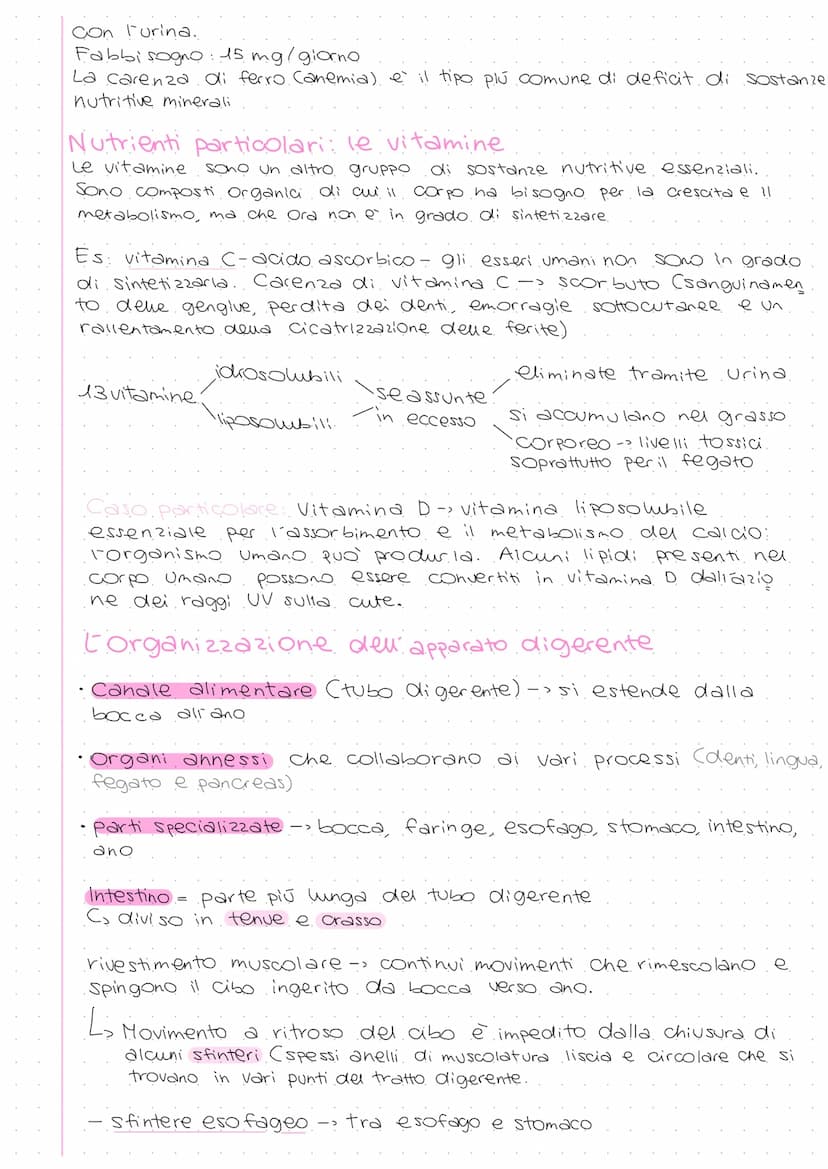 con l'urina.
Fabbisogno: 15 mg/giorno
La carenza di ferro (anemia) e' il tipo più comune di deficit di sostanze
nutritive minerali
Nutrienti particolari: le vitamine
Le vitamine sono un altro gruppo di sostanze nutritive essenziali.
Sono composti organici di cui il corpo ha bisogno per la crescita e il
metabolismo, ma che ora non e' in grado di sintetizzare
Es: vitamina C-acido ascorbico - gli esseri umani non sono in grado
di sintetizzarla. Carenza di vitamina C -> scorbuto (sanguinamen
to delle gengive, perdita dei denti, emorragie sottocutanee e un
rallentamento della cicatrizzazione delle ferite)
13 vitamine
idrosolubili
liposolubili
se assunte
in eccesso
eliminate tramite urina
si accumulano nel grasso
corporeo -> livelli tossici
soprattutto per il fegato
Caso particolare: Vitamina D -> vitamina liposolubile
essenziale per l'assorbimento e il metabolismo del calcio:
l'organismo umano può produrla. Alcuni lipidi presenti nel
corpo umano possono essere convertiti in vitamina D dall'azio
ne dei raggi UV sulla cute.
L'organizzazione dell'apparato digerente
· Canale alimentare (tubo digerente) -> si estende dalla
bocca all'ano
· Organi annessi che collaborano ai vari processi (denti, lingua,
fegato e pancreas)
· parti specializzate -> bocca, faringe, esofago, stomaco, intestino,
ano
Intestino = parte più lunga del tubo digerente
↳ diviso in tenue e crasso
rivestimento muscolare -> continui movimenti che rimescolano e
spingono il cibo ingerito da bocca verso ano.
↳ Movimento a ritroso del cibo è impedito dalla chiusura di
alcuni sfinteri (spessi anelli di muscolatura liscia e circolare che si
trovano in vari punti del tratto digerente.
- sfintere esofageo -> tra esofago e stomaco